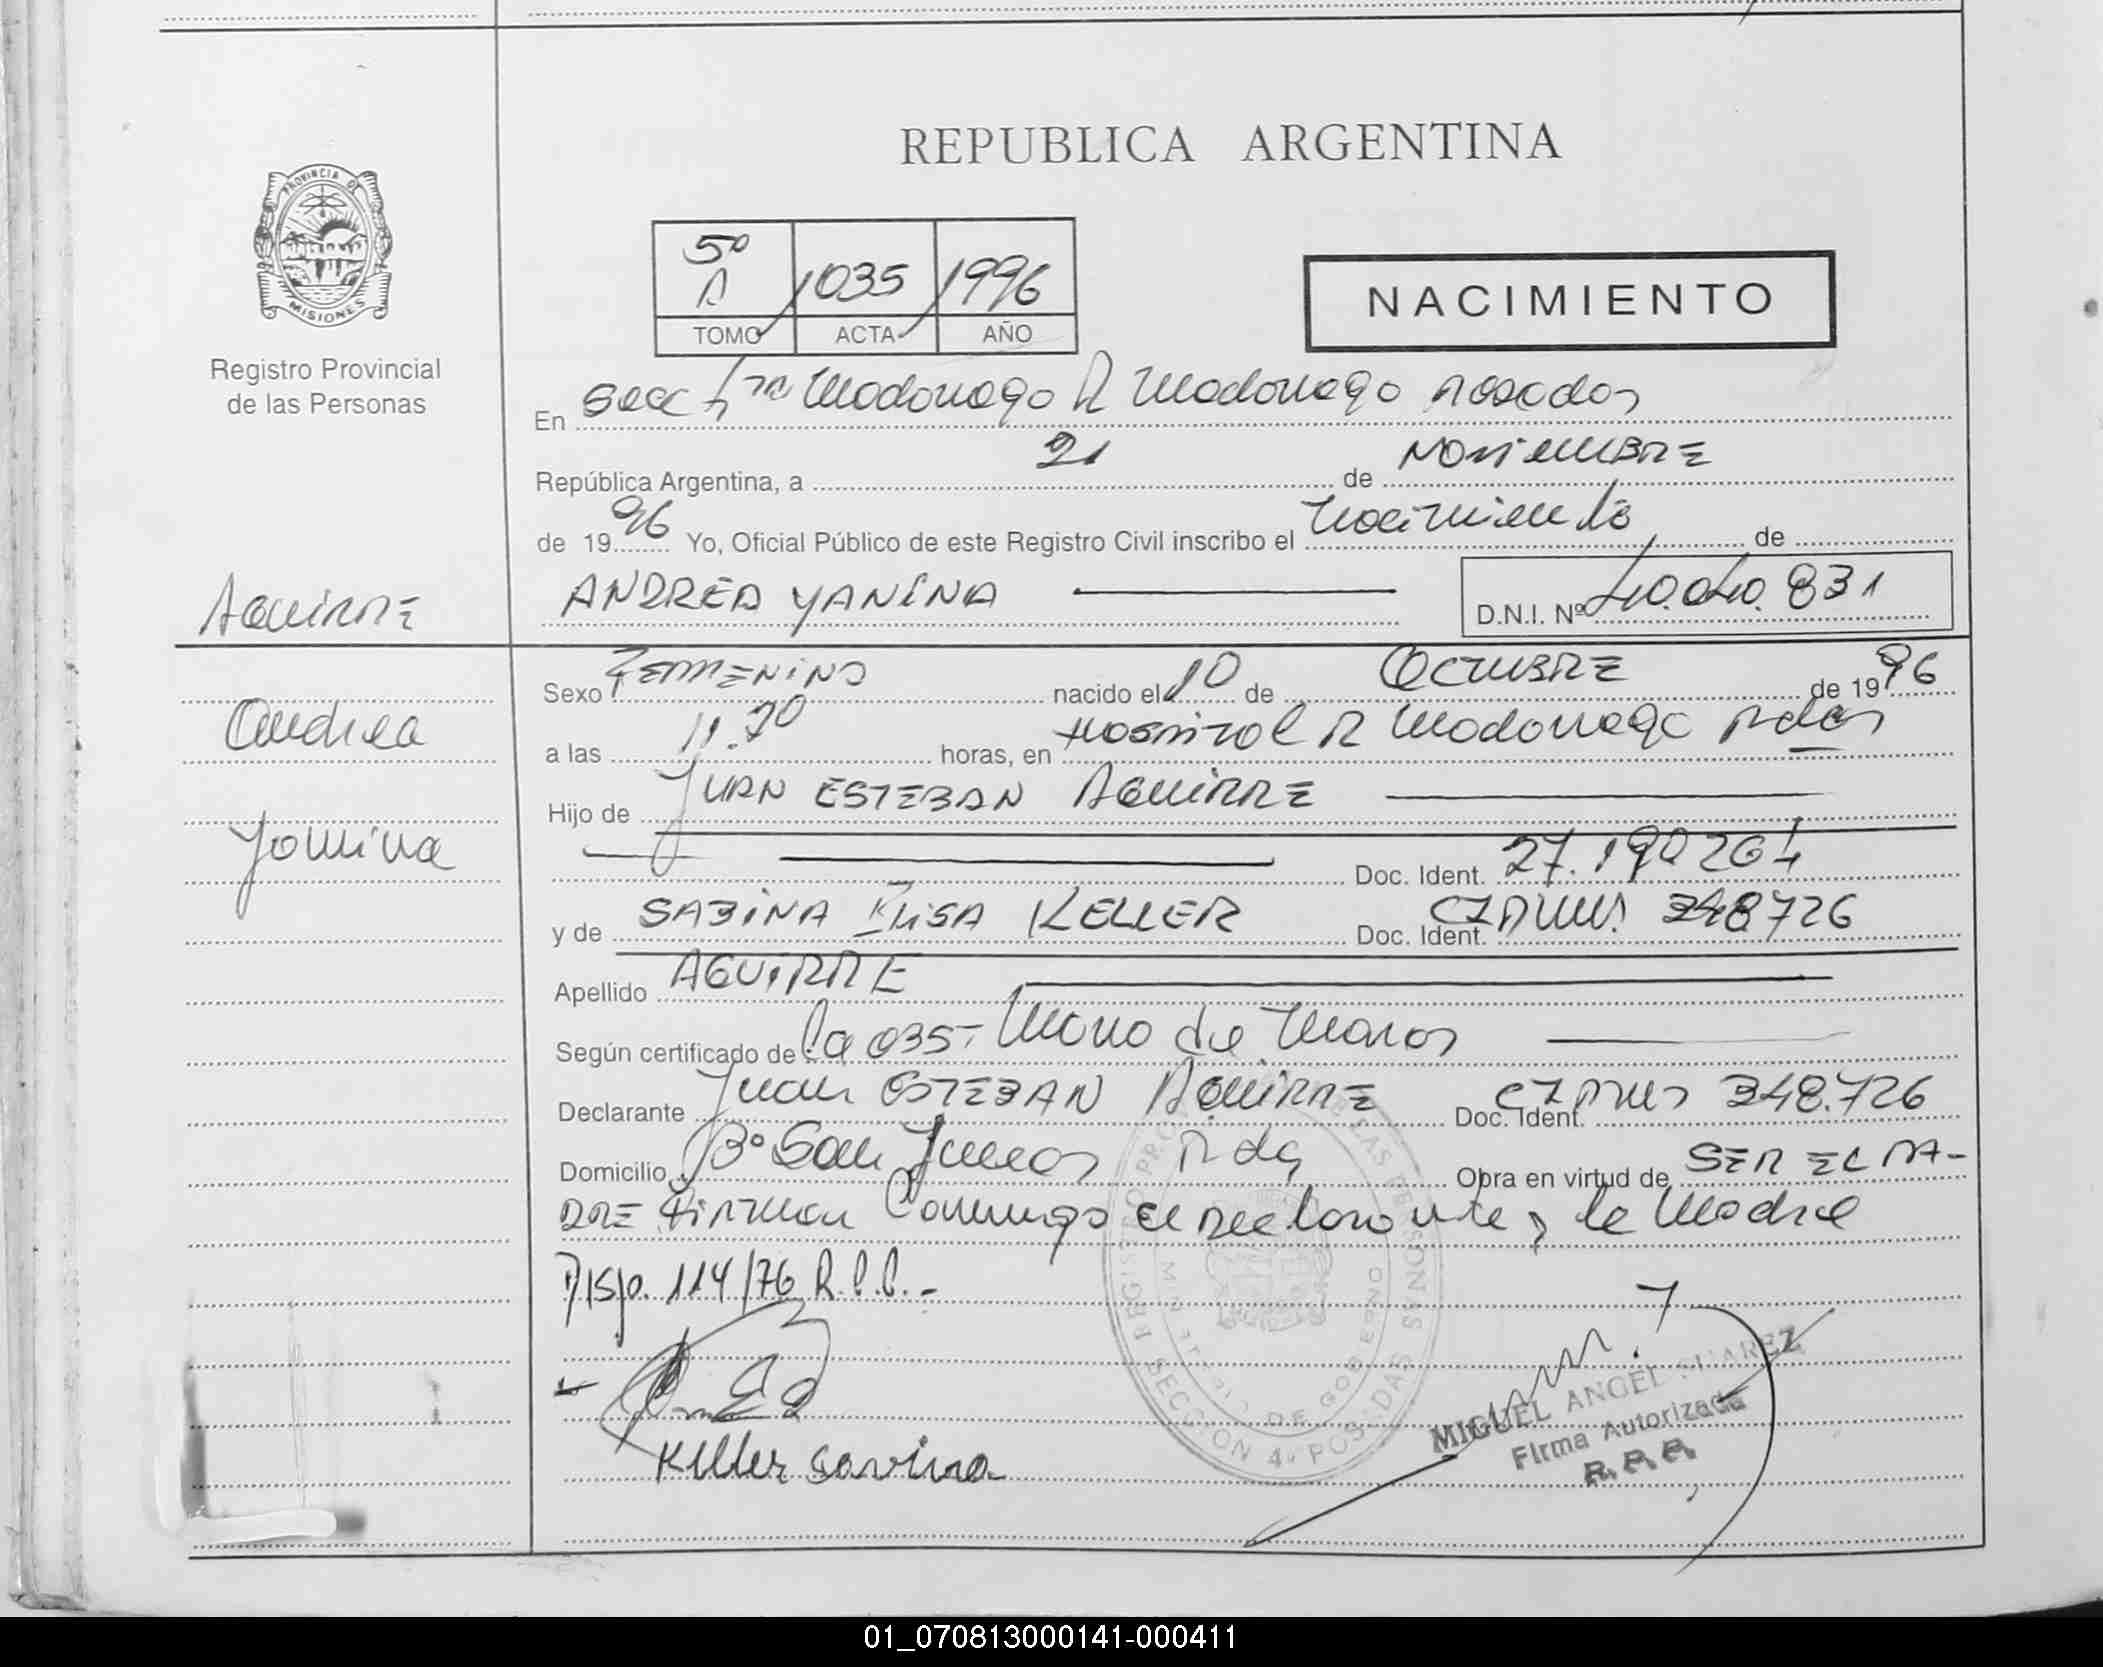 REPUBLICA ARGENTINA
PROVINCIA DE
MISIONES
Registro Provincial
de las Personas
5º
A 1035 1996
TOMO ACTA AÑO
NACIMIENTO
En Secc 4ta Madariaga R Madariaga Posadas
República Argentina, a 21 de Noviembre
de 1996 Yo, Oficial Público de este Registro Civil inscribo el Nacimiento de
Aguirre
ANDREA YANINA D.N.I. Nº 40.040.831
Andrea
Yanina
Sexo Femenino nacido el 10 de Octubre de 1996
a las 11.20 horas, en Hospital R Madariaga Pdas
Hijo de Juan ESTEBAN Aguirre
Doc. Ident. 27.190264
y de SABINA ELISA KELLER Doc. Ident. 348726
Apellido AGUIRRE
Según certificado de la 035-
Declarante Juan ESTEBAN Aguirre Doc. Ident. 348.726
Domicilio Bº San Pdas Obra en virtud de SER EL PA-
DRE Firman Conmigo el declarante y la Madre
Disp. 114/76 R.P.P.-
Keller Savina
REGISTRO PROV DE LAS PERSONAS
MINISTERIO DE GOBIERNO
SECCION 4ª POSADAS
MIGUEL ANGEL SUAREZ
Firma Autorizada
R.P.P.
01_070813000141-000411